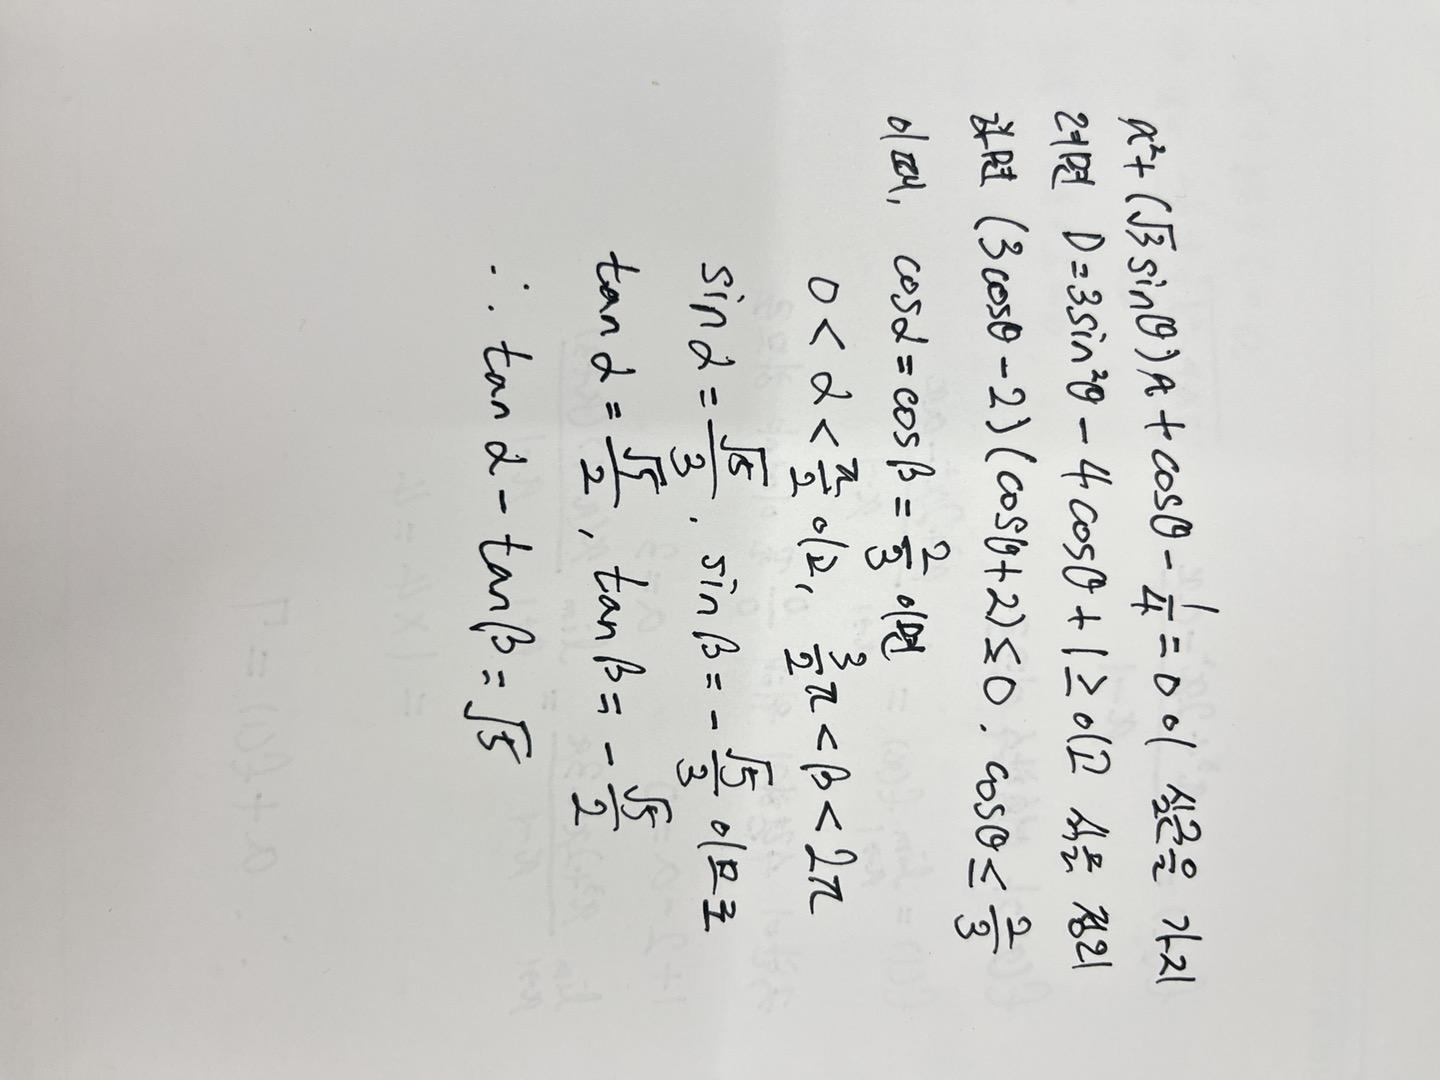 x²+(√3 sinθ)x+cosθ-1/4=0이 실근을 가지
려면 D=3sin²θ-4cosθ+1≥0이고 식을 정리
하면 (3cosθ-2)(cosθ+2)≤0. cosθ≤2/3
이때, cosα=cosβ=2/3 이면
0<α<π/2 이고, 3/2π<β<2π
sinα=√5/3. sinβ=-√5/3 이므로
tanα=√5/2, tanβ=-√5/2
∴ tanα-tanβ=√5